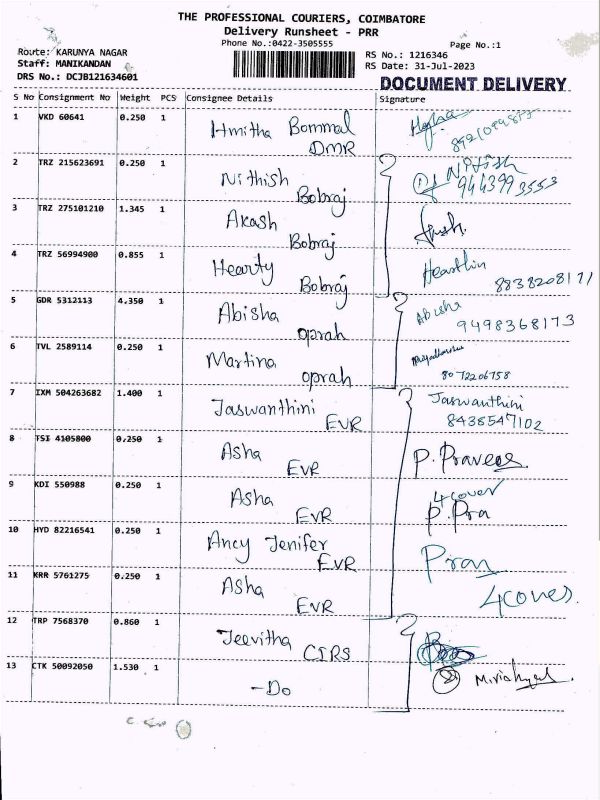 THE PROFESSIONAL COURIERS, COIMBATORE
Delivery Runsheet - PRR
Phone No.:0422-3505555
Page No.:1
Route: KARUNYA NAGAR
Staff: MANIKANDAN
DRS No.: DCJB121634601
RS No.: 1216346
RS Date: 31-Jul-2023
DOCUMENT DELIVERY
S No Consignment No Weight PCS Consignee Details Signature
1 VKD 60641 0.250 1 Hmitha Bommal
DMR
2 TRZ 215623691 0.250 1 Nithish Nitish
Bobraj 9443993553
3 TRZ 275101210 1.345 1 Akash
Bobraj
4 TRZ 56994900 0.855 1 Hearty Hearthin
Bobraj 8838208171
5 GDR 5312113 4.350 1 Abisha Abisha
oprah 9498368173
6 TVL 2589114 0.250 1 Martina
oprah 8072206758
7 IXM 504263682 1.400 1 Jaswanthini Jaswanthini
EVR 8438547102
8 TSI 4105800 0.250 1 Asha P. Praveen
EVR
9 KDI 550988 0.250 1 Asha 4 cover
EVR P. Pra
10 HYD 82216541 0.250 1 Ancy Jenifer
EVR Pran
11 KRR 5761275 0.250 1 Asha
EVR 4 cones.
12 TRP 7568370 0.860 1 Jeevitha
CIRS
13 CTK 50092050 1.530 1 - Do